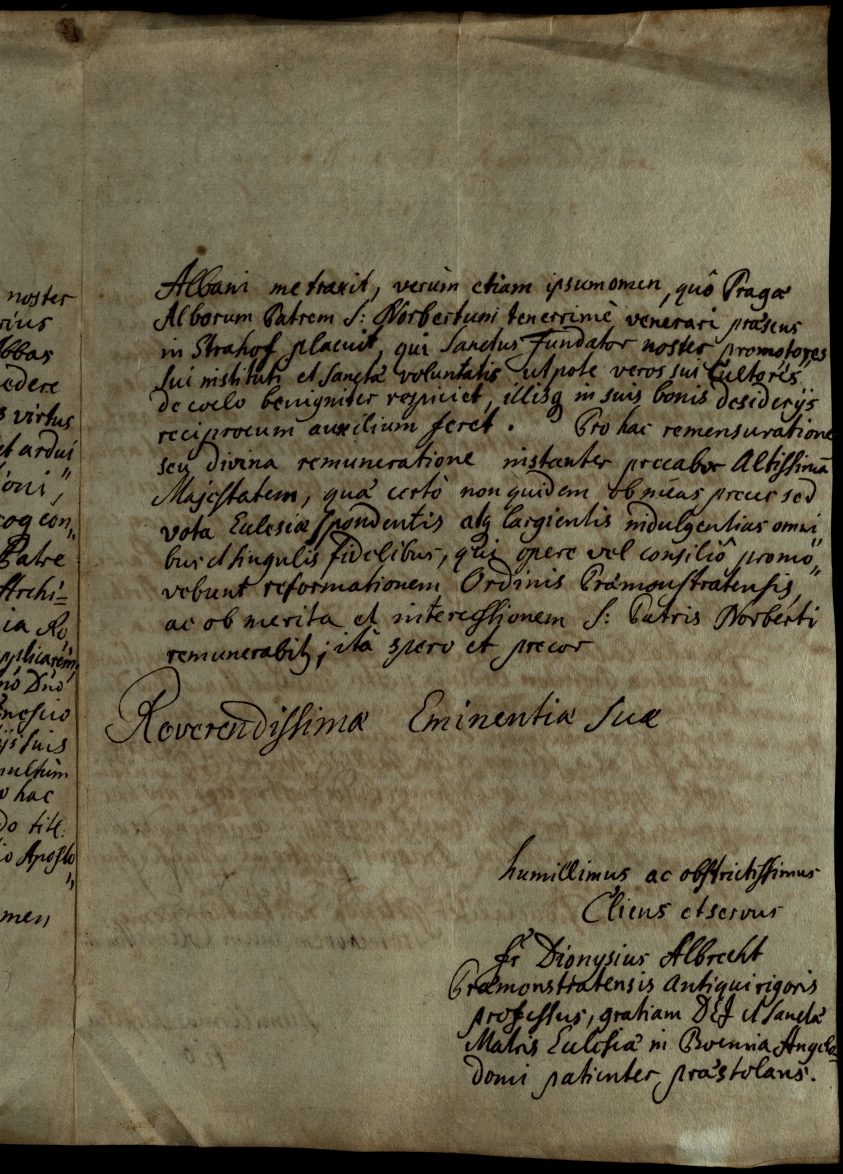 noster
rius
Abbas
cedere
s virtus
et ardui
ioni,"
cog con,,
Patre
Archi=
ia Ro,
pplicarem,
mo Dno
enesuo
ijs suis
multum
o hac
do tit:
io Aposto
"
men
Albani me traxit, verùm etiam ipsum omen, quô Pragæ
Alborum Patrem S: Norbertum tenerrimè venerari præsens
in Strahof placuit, qui Sanctus Fundator noster promotores
sui instituti et Sanctæ voluntatis utpote veros sui Cultores,
de coelo benigniter respiciet, illisq in suis bonis desiderijs
reciprocum auxilium feret. Pro hac remensuratione
seu divina remuneratione instanter precabor Altissimã
Majestatem, quæ certò non quidem ob meas preces sed
vota Eclesiæ spondentis atq largientis indulgentias omni
bus et singulis fidelibus, qui opere vel consiliô promo,,
vebunt reformationem Ordinis Præmonstratensis,
ac ob merita et intercessionem S: Patris Norberti
remunerabit; ità spero et precor
Reverendissimæ Eminentiæ Suæ
humillimus ac obstrictissimus
Cliens et servus
Fr Dionysius Albrecht
Præmonstratensis Antiqui rigoris
professus, gratiam DEJ et Sanctæ
Matris Eclesiæ in Boemia Angelo=
domi patienter præstolans.